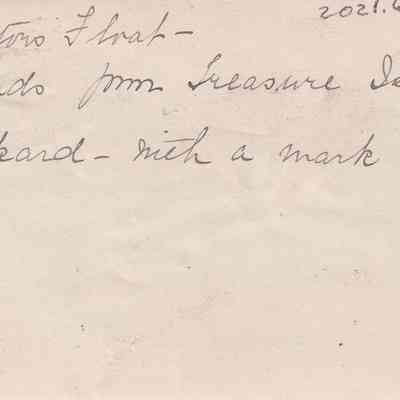 2021.
tors Float-
ds from Treasure
kard - with a mark